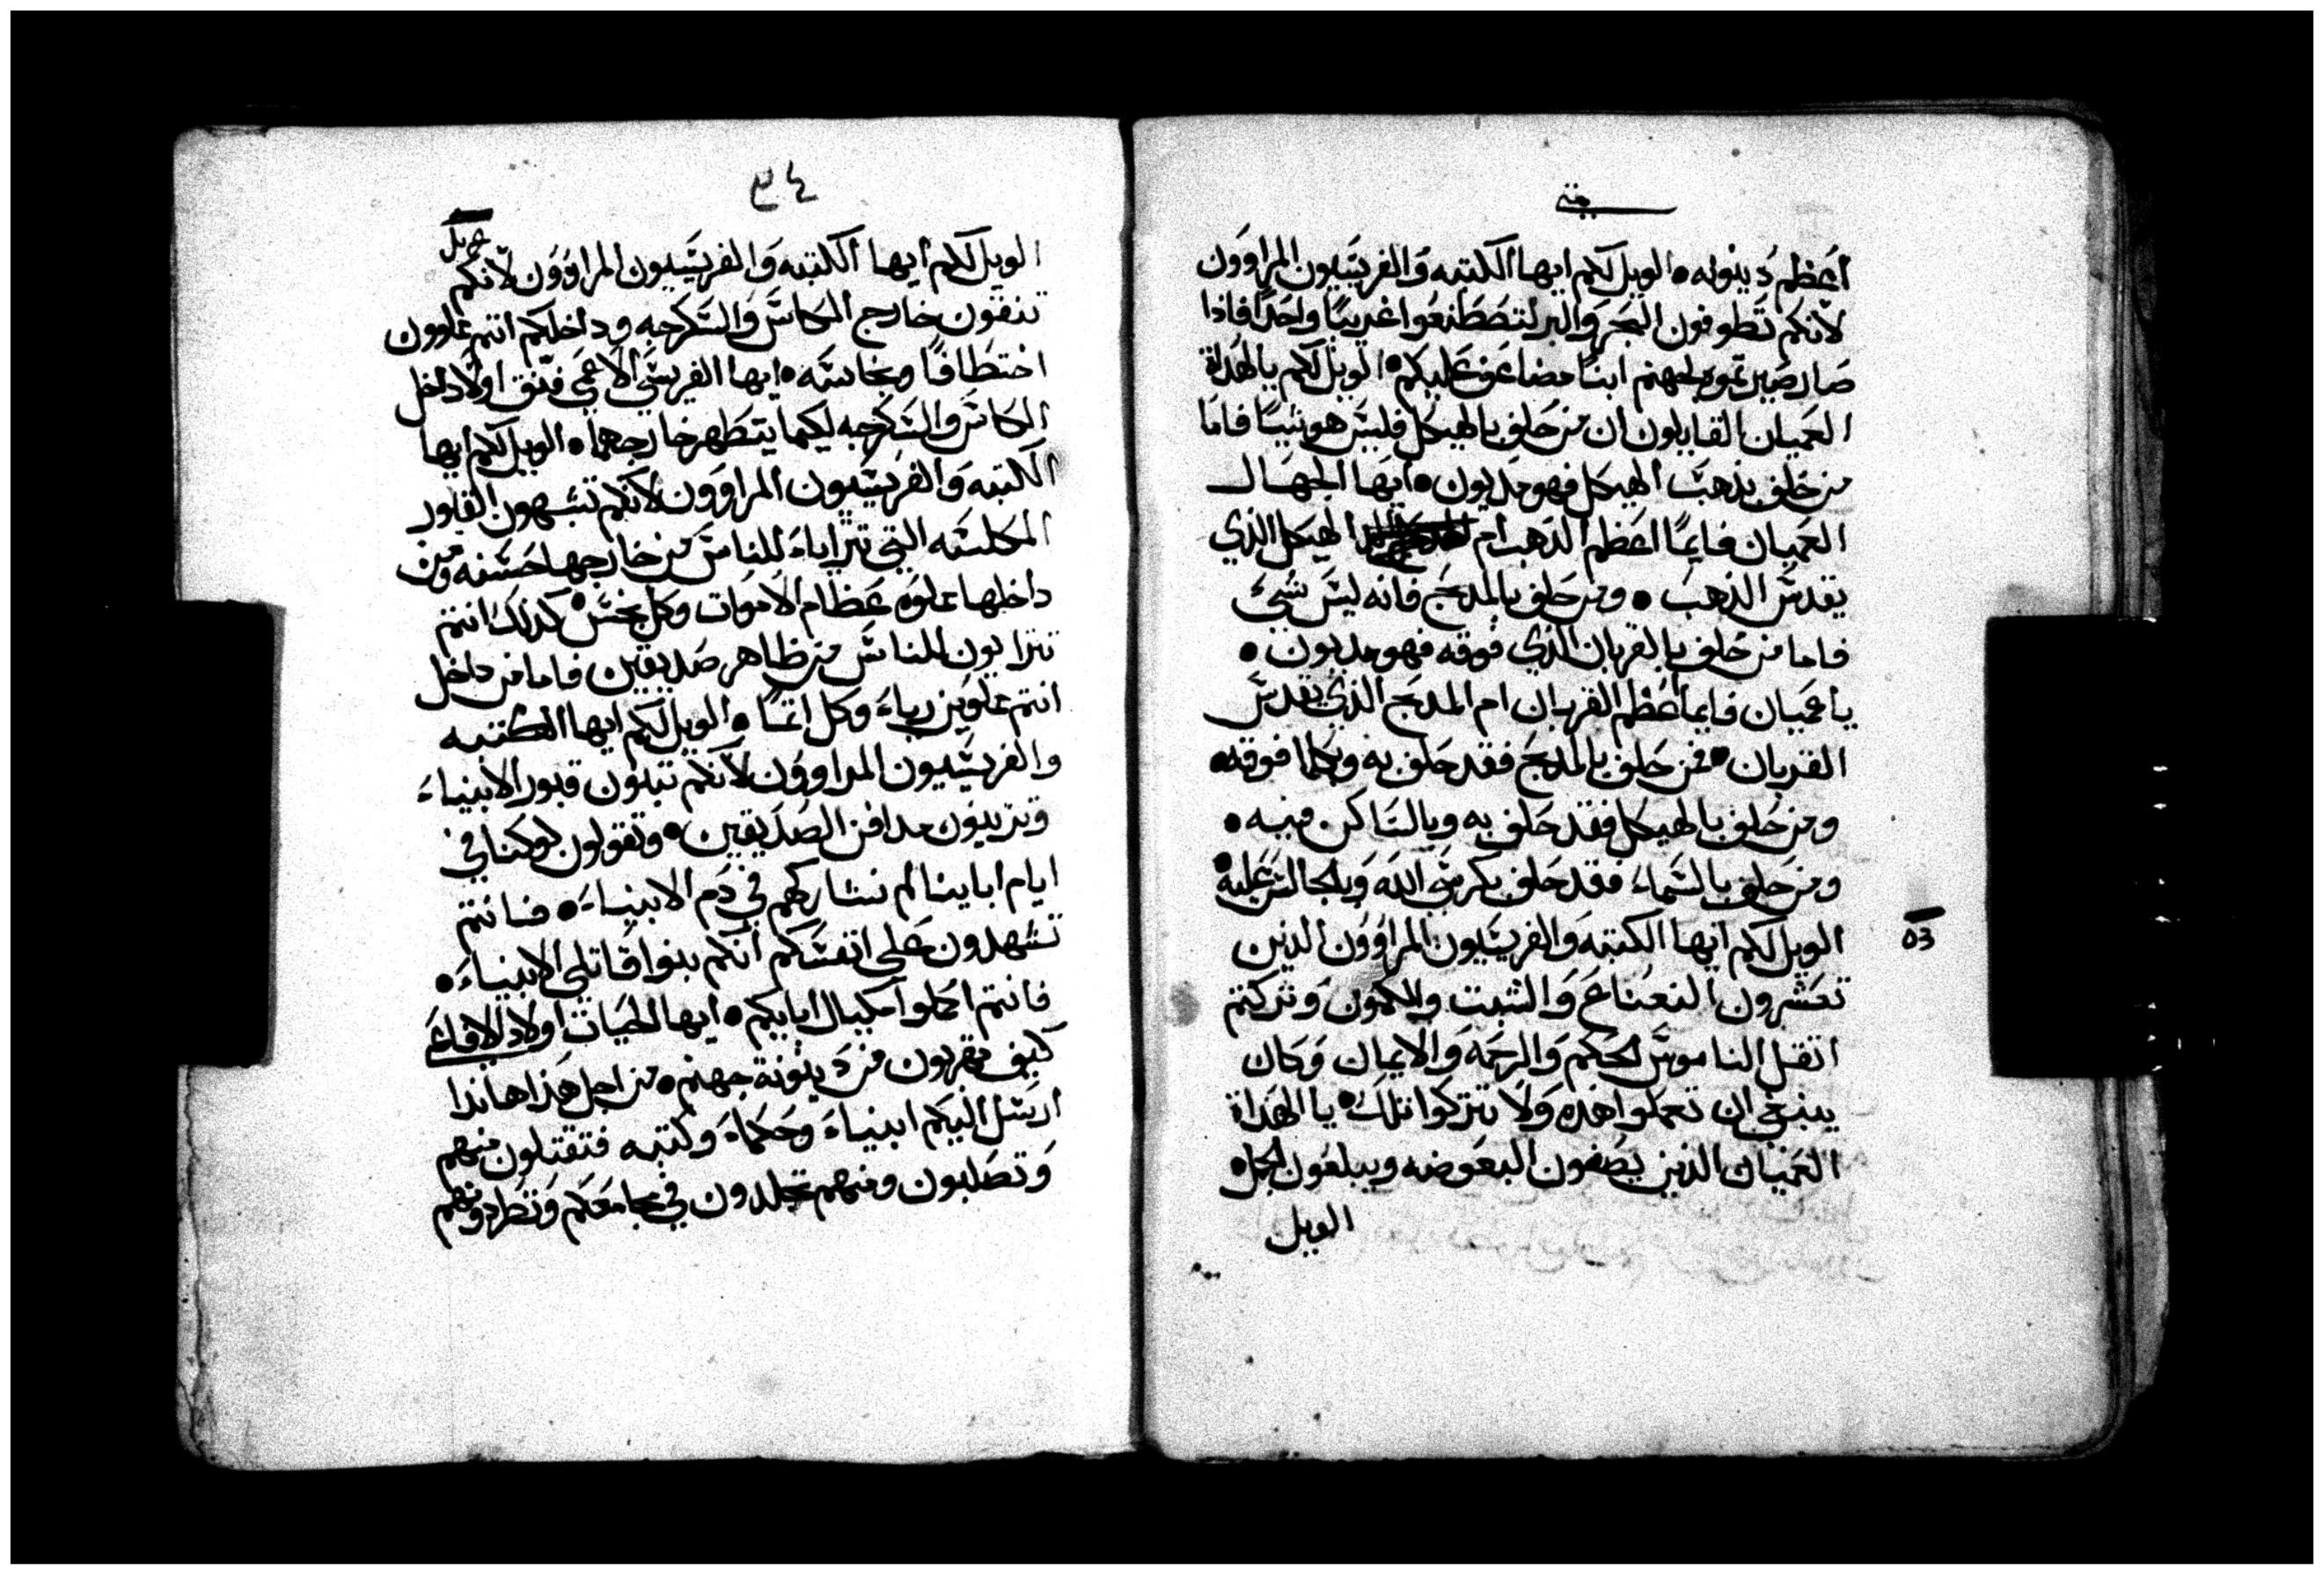 متى
اعظم دينونه • الويل لكم ايها الكتبه والفريسيون المراوون
لانكم تطوفون البحر والبر لتصطنعوا غريبًا واحدًا فاذا
صار صيرتموه لجهنم ابنًا مضاعف عليكم • الويل لكم يا الهداة
العميان القايلون ان من حلف بالهيكل فليس هو شيًا فاما
من حلف بذهب الهيكل فهو مديون • ايها الجهال
العميان فايما اعظم الذهب ام الهيكل الذي
يقدس الذهب • ومن حلف بالمدبح فانه ليس شيء
فاما من حلف بالقربان الذي فوقه فهو مديون •
يا عميان فايما اعظم القربان ام المدبح الذي يقدس
القربان • فمن حلف بالمدبح فقد حلف به وبكلما فوقه •
ومن حلف بالهيكل فقد حلف به وبالساكن فيه •
ومن حلف بالسماء فقد حلف بكرسي الله وبالجالس عليه •
الويل لكم ايها الكتبه والفريسيون المراوون الذين
تعشرون النعناع والشبت والكمون وتركتم
اتقل الناموس الحكم والرحمه والايمان وكان
ينبغي ان تعملوا هذه ولا تتركوا تلك • يا الهداة
العميان الذين يصفون البعوضه ويبلعون الجمل •
الويل
٣٤
الويل لكم ايها الكتبه والفريسيون المراوون لانكم
تنقون خارج الكاس والسكرجه وداخلكم انتم مملوون
اختطافًا ونجاسه • ايها الفريسي الاعمى فنق اولًا داخل
الكاس والسكرجه ليكما يتطهر خارجهما • الويل لكم ايها
الكتبه والفريسيون المراوون لانكم تشبهون القبور
المكلسه التي تترايا للناس من خارجها حسنه ومن
داخلها مملوه عظام الاموات وكل نجس • كذلك انتم
تترايون للناس من ظاهر صديقين فاما من داخل
انتم مملوين رياء وكل اتمًا • الويل لكم ايها الكتبه
والفريسيون المراوون لانكم تبنون قبور الانبياء
وتزينون مدافن الصديقين • وتقولون لو كنا في
ايام اباينا لم نشاركهم في دم الانبياء • فانتم
تشهدون على انفسكم انكم بنوا قاتلي الانبياء •
فانتم اكملوا مكيال ابايكم • ايها الحيات اولاد الافاعي
كيف تهربون من دينونة جهنم • من اجل هذا هانذا
ارسل اليكم انبياء وحكماء وكتبه فتقتلون منهم
وتصلبون ومنهم تجلدون في مجامعكم وتطردونهم